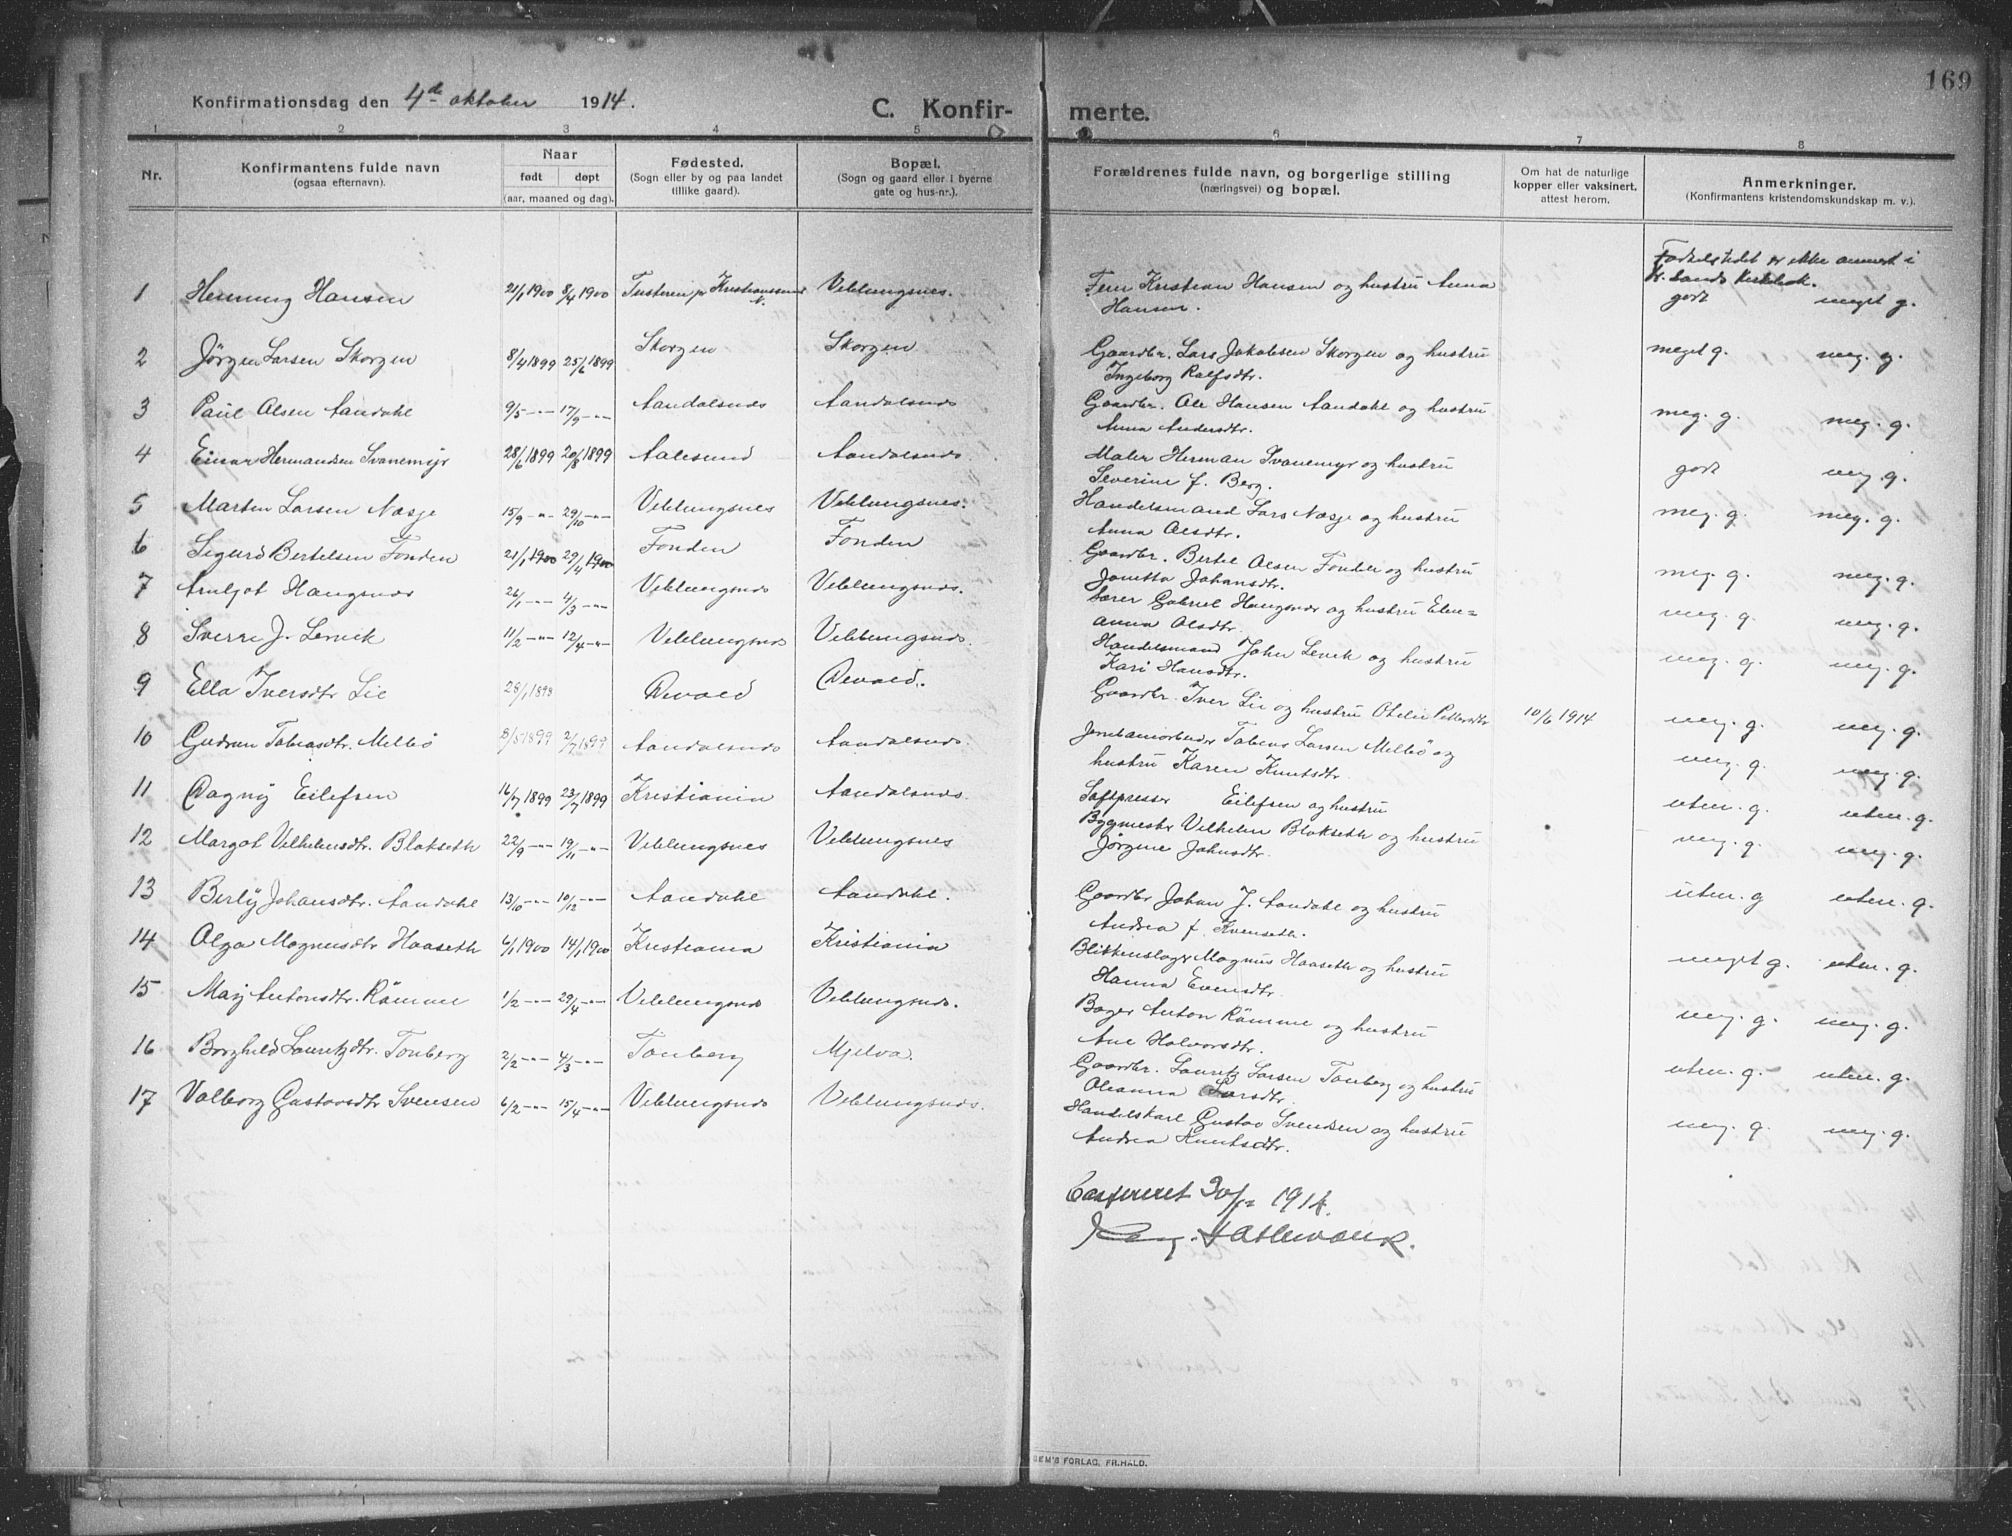 169
Konfirmationsdag den 4de oktober 1914.
C. Konfirmerte.
1 2 3 4 5 6 7 8
Nr.
Konfirmantens fulde navn
(ogsaa efternavn).
Naar
født døpt
(aar, maaned og dag).
Fødested.
(Sogn eller by og paa landet
tillike gaard).
Bopæl.
(Sogn og gaard eller i byerne
gate og hus-nr.).
Forældrenes fulde navn, og borgerlige stilling
(næringsvei) og bopæl.
Om hat de naturlige
kopper eller vaksinert.
attest herom.
Anmerkninger.
(Konfirmantens kristendomskundskap m. v.).
Fødselstedet er ikke anmerk i
Kr.sunds kirkebok.
1 Henning Hansen 21/1 1900 8/4 1900 Tusteren pr Kristianssund N. Veblungsnes. Kristian Hansen og hustru Anna
Hansen. godt meget g.
2 Jörgen Larsen Skorgen 8/4 1899 25/6 1899 Skorgen Skorgen Gaardbr. Lars Jakobsen Skorgen og hustru
Ingeborg Rolfsdtr. meget g. meg. g.
3 Paul Olsen Aandahl 9/5 -"- 17/9 -"- Aandalsnes Aandalsnes Gaardbr. Ole Hansen Aandahl og hustru
Anna Andersdtr. meg. g. meg. g.
4 Einar Hermandsen Svanemyr 28/6 1899 20/8 1899 Aalesund Aandalsnes Maler Herman Svanemyr og hustru
Severine f. Berg. godt meg. g.
5 Marten Larsen Næsje 15/9 -"- 29/10 -"- Veblungsnes Veblungsnes. Handelsmand Lars Næsje og hustru
Anna Olsdtr. meg. g. meg. g.
6 Sigurd Bertelsen Fonden 21/1 1900 29/4 1900 Fonden Fonden Gaardbr. Bertel Olsen Fonden og hustru
Jonetta Johansdtr. meg. g. meg. g.
7 Arnljot Hangsnes 26/1 -"- 4/3 -"- Veblungsnes Veblungsnes. Lærer Gabriel Hangsnes og hustru Elen=
anna Olsdtr. meg. g. meg. g.
8 Sverre J. Lervik 11/2 -"- 12/4 -"- Veblungsnes Veblungsnes. Handelsmand John Lervik og hustru
Kari Hansdtr. meg. g. meg. g.
9 Ella Iversdtr Lie 28/1 1898 Devold Devold. Gaardbr. Iver Lie og hustru Otelie Pettersdtr 10/6 1914 meg. g. meg. g.
10 Gudrun Tobiasdtr. Melbö 8/5 1899 2/7 1899 Aandalsnes Aandalsnes. Jernbanearbeider Tobias Larsen Melbö og
hustru Karen Knutsdtr. meg. g. meg. g.
11 Dagny Eilefsen 16/7 1899 23/7 1899 Kristiania Aandalsnes. Saftpresser Eilefsen og hustru utm. g. utm. g.
12 Margot Vilhelmsdtr. Blokseth 22/9 -"- 19/11 -"- Veblungsnes Veblungsnes Bygmester Vilhelm Blokseth og hustru
Jörgine Johnsdtr. meg. g. meg. g.
13 Berly Johansdtr. Aandahl 13/10 -"- 10/12 -"- Aandahl Aandahl. Gaardbr Johan J. Aandahl og hustru
Andrea f. Kvenseth. utm. g utm. g.
14 Olga Magnusdtr Haaseth 6/1 1900 14/1 1900 Kristiania Kristiania Blikkenslager Magnus Haaseth og hustru
Hanna Evensdtr meget g. utm. g.
15 Maij Antonsdtr. Römme 1/2 -"- 29/4 -"- Veblungsnes Veblungsnes. Bager Anton Römme og hustru
Ane Halvorsdtr. meg. g. meg. g.
16 Borghild Lauritzdtr. Tonberg 2/2 -"- 4/3 -"- Tonberg Mjelva. Gaardbr. Lauritz Larsen Tonberg og hustru
Oleanna Larsdtr. utm. g. utm. g.
17 Valborg Gustavsdtr Svensen 6/2 -"- 15/4 -"- Veblungsnes Veblungsnes. Handelskarl Gustav Svendsen og hustru
Andrea Knutsdtr. meg. g. meg. g.
Confereret 30/12 1914.
SEM'S FORLAG, FR.HALD.